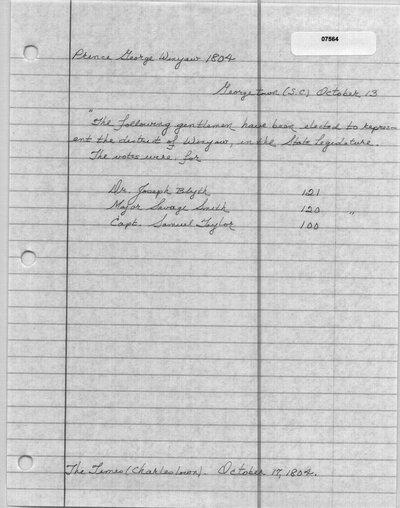 07564
Prince George Winyaw 1804
Georgetown (S.C.) October 13
"The following gentlemen have been elected to repres-
ent the district of Winyaw, in the State Legislature.
The votes were for
Dr. Joseph Blyth 121
Major Savage Smith 120 "
Capt. Samuel Taylor 100
The Times (Charleston). October 17, 1804.